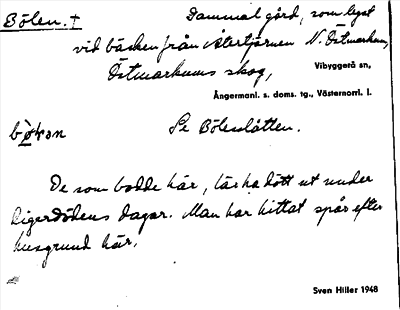 Bölen. † Gammal gård, som legat
vid bäcken från Återtjärnen N. Östmarkum,
Östmarkums skog,
Vibyggerå sn,
Ångermanl. s. doms. tg., Västernorrl. l.
Se Bölesslåtten.
De som bodde här, lär ha dött ut under
Digerdödens dagar. Man har hittat spår efter
husgrund här.
Sven Hiller 1948